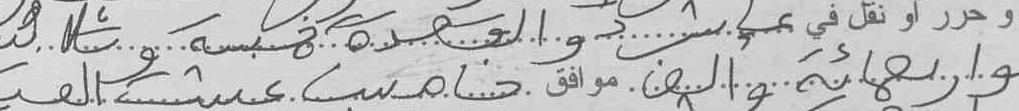 و حرر أو نقل في عاشر ذو القعدة خمسة وثلاثين
وأربعمائة وألف موافق خامس عشر